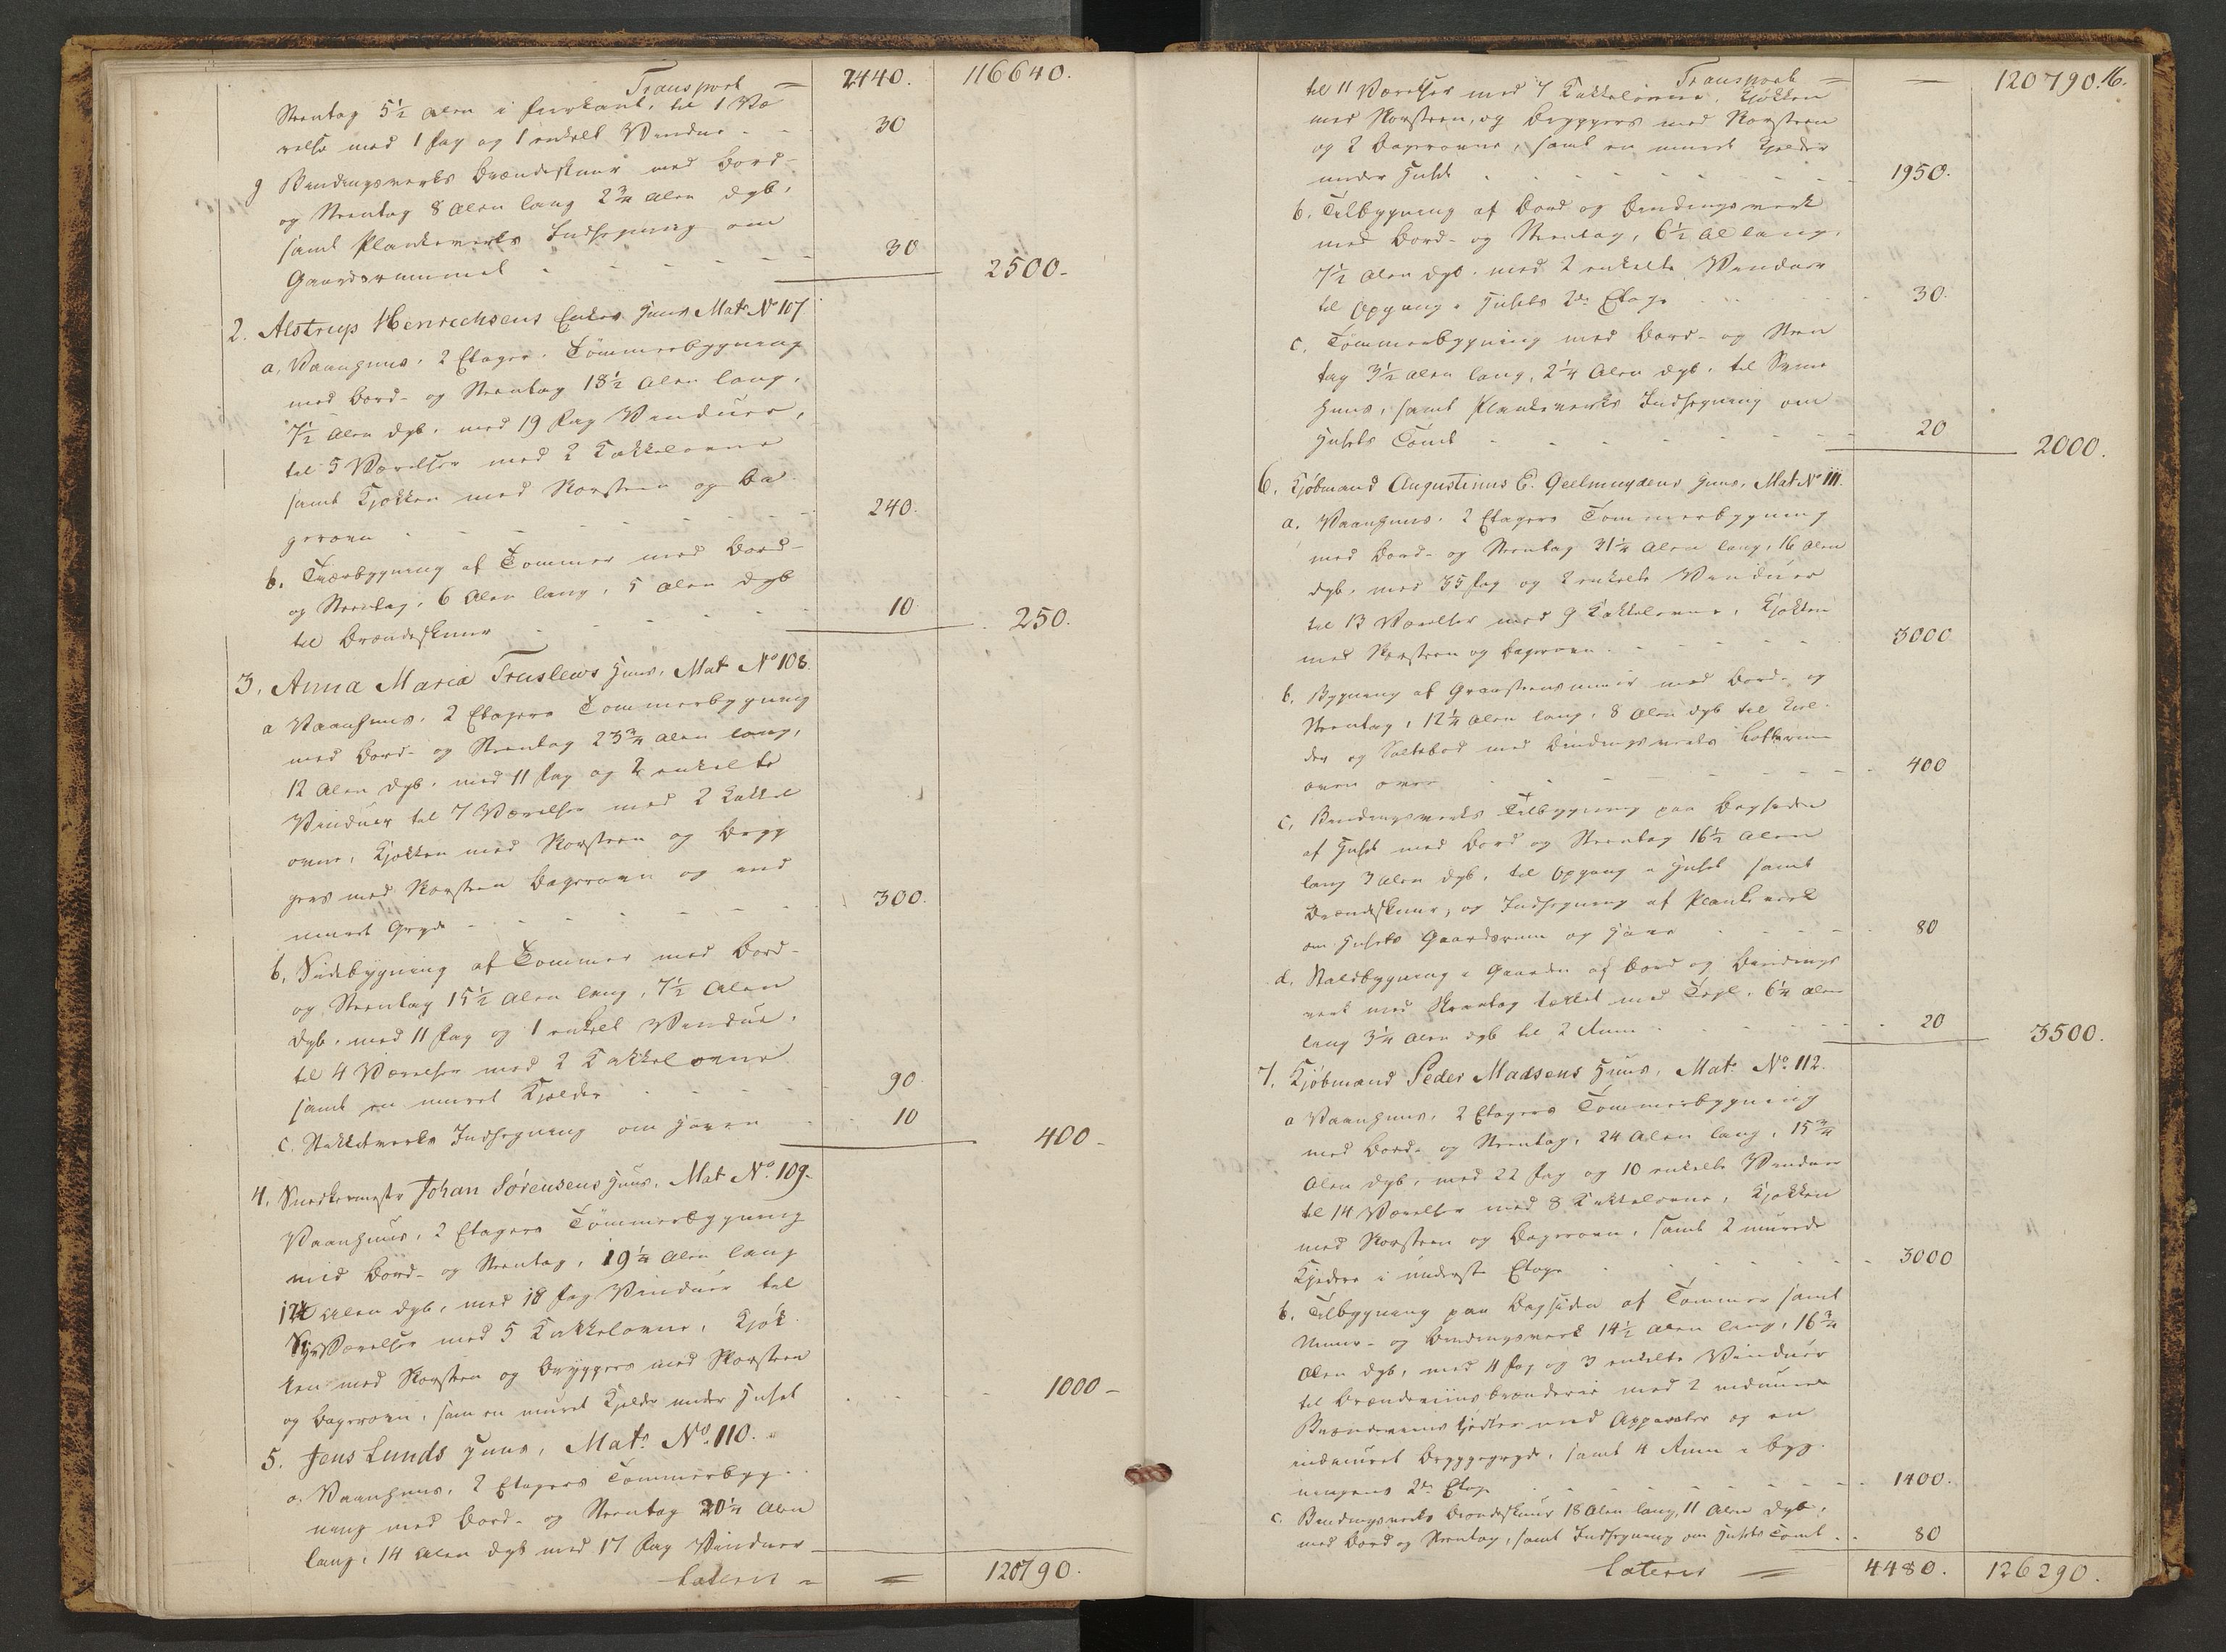 Transport = 2440. 116640.
Steentag 5½ Alen i Firkant, til 1 Væ
relse med 1 Fag og 1 enkelt Vindue - - 30
g Bindingsverks Brændeskuur med Bord-
og Steentag 8 Alen lang 2¾ Alen dyb,
samt Plankeverks Indhegning om
Gaardsrummet - - - - - - 30 2500-
2. Alstrup Henrechsens Enkes Huus Mat: No 107
a, Vaanhuus, 2 Etages Tømmerbygning
med Bord- og Steentag 18½ Alen lang,
7½ Alen dyb, med 19 Fag Vinduer,
til 5 Værelser med 2 Kakkelovne
samt Kjøkken med Skorsteen og Ba
gerovn - - - - - - 240.
b. Tværbygning af Tømmer med Bord-
og Steentag, 6 Alen lang, 5 Alen dyb
til Brændeskuur - - - - - 10 250.
3, Anna Maria Truslews Huus, Mat No 108.
a Vaanhuus, 2 Etagers Tømmerbygning
med Bord- og Steentag 23¾ Alen lang,
12 Alen dyb, med 11 Fag og 2 enkelte
Vinduer til 7 Værelser med 2 Kakkel
ovne, Kjøkken med Skorsteen og Bryg
gers med Skorsteen Bagerovn og ind
muret Gryde - - - - - - 300.
b, Sidebygning af Tømmer med Bord-
og Steentag 15½ Alen lang, 7½ Alen
dyb, med 11 Fag og 1 enkelt Vindue,
til 4 Værelser med 2 Kakkelovne
samt en muret Kjelder - - - 90
c. Stakketverks Indhegning om Haven - - 10 400-
4, Snedkermestr Johan Sørensens Huus, Mat No. 109.
Vaanhuus, 2 Etagers Tømmerbygning
med Bord- og Steentag, 19¼ Alen lang
Alen dyb, med 18 Fag Vinduer til
Værelser med 5 Kakkelovne, Kjøk
ken med Skorsteen og Bryggers med Skorsteen
og Bagerovn, samt en muret Kjelder under Huset - - - 1000-
5. Jens Lunds Huus, Mat: No. 110.
a. Vaanhuus, 2 Etagers Tømmerbyg-
ning med Bord- og Steentag 20¼ Alen
lang, 14 Alen dyb med 17 Fag Vinduer
Lateris = = 120790.
Transport = — 120790.
til 11 Værelser med 7 Kakkelovne, Kjøkken
med Skorsteen, og Bryggers med Skorsteen
og 2 Bagerovne, samt en muret Kjelder
under Huset - - - - - - 1950.
b. Tilbygning af Bord og Bindingsverk
med Bord- og Steentag, 6½ Al lang,
7½ Alen dyb. med 2 enkelte Vinduer
til Opgang i Husets 2den Etage - - - 30.
c, Tømmerbygning med Bord- og Steen
tag 3½ Alen lang, 2¼ Alen dyb, til
huus, samt Plankeverks Indhegning om
Husets Tomt - - - - - - 20 2000.
6. Kjøbmand Augustinus E. Geelmuydens Huus, Mat. No 111.
a. Vaanhuus, 2 Etagers Tømmerbygning
med Bord- og Steentag 31¼ Alen lang, 16 Alen
dyb, med 35 Fag og 2 enkelte Vinduer
til 13 Værelser med 9 Kakkelovne, Kjøkken
med Skorsteen og Bagerovn - - - - 3000
b, Bygning af Graasteensmuur med Bord- og
Steentag, 12¼ Alen lang, 8 Alen dyb til Kjel-
der og Saltebod med Bindingsverks
oven over - - - - - - 400
c, Bindingsverks Tilbygning paa Bagsiden
af Huset med Bord og Steentag 16½ Alen
lang 3 Alen dyb, til Opgang i Huset samt
Brændeskuur, og Indhegning af Plankeverk
om Husets Gaardsrum og Have - - - 80
d, Staldbygning i Gaarden af Bord og Bindings
verk med Steentag tækket med Tegl, 6¼ Alen
lang 3¼ Alen dyb til 2 Rum - - - 20 3500.
7, Kjøbmand Peder Madsens Huus, Mat No. 112.
a Vaanhuus, 2 Etagers Tømmerbygning
med Bord- og Steentag, 24 Alen lang, 15¾
Alen dyb, med 22 Fag og 10 enkelte Vinduer
til 14 Værelser med 8 Kakkelovne, Kjøkken
med Skorsteen og Bagerovn, samt 2 murede
Kjeldere i underste Etage - - - - 3000
b, Tilbygning paa Bagsiden af Tømmer samt
Muur- og Bindingsverk 14½ Alen lang, 16¾
Alen dyb, med 4 Fag og 3 enkelte Vinduer
til Brændeviinsbrænderie med 2 indmurede
Brændeviinskjedler med Apparater og en
indmuret Bryggegryde, samt 4 Rum i Byg-
ningens 2den Etage - - - - 1400.
c. Bindingsverks Brændeskuur 18 Alen lang, 11 Alen dyb,
med Bord og Steentag, samt Indhegning om Husets Tomt - - 80
Lateris = 4480. 126290.